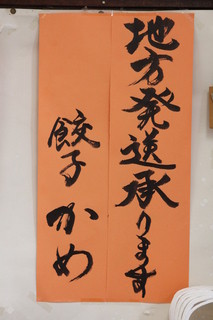 地方発送承ります
餃子かめ